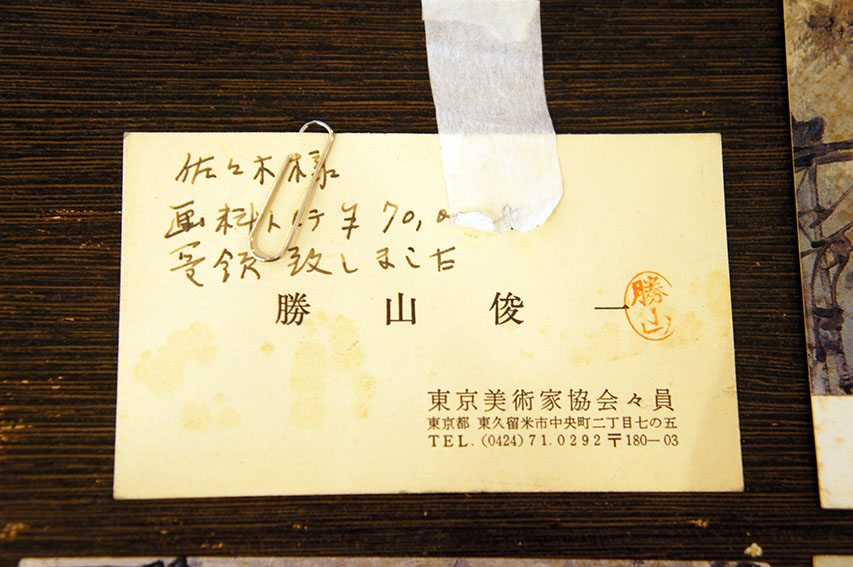 佐々木様
画料トシテ ¥70,0
受領致しました
勝山俊一
勝山
東京美術家協会々員
東京都 東久留米市中央町二丁目七の五
TEL. (0424) 71.0292 〒180—03